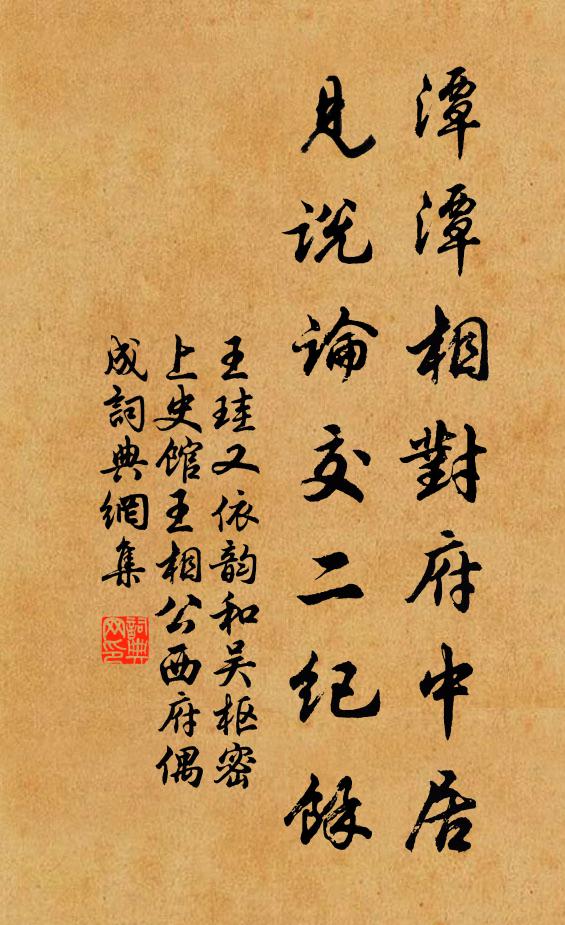 潭潭相對府中居
見說論交二紀餘
王珪又依韵和吴枢密
上史馆王相公西府偶
成詞典網集
詞典网印